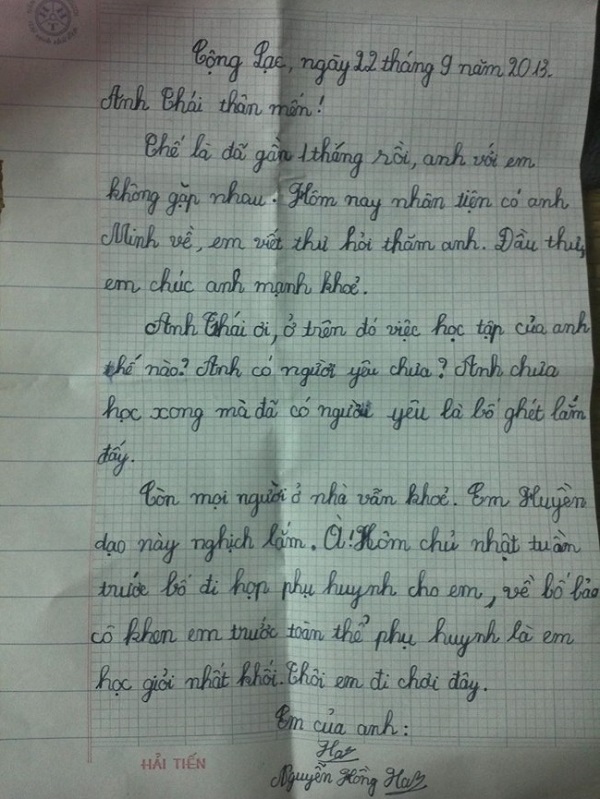 Cộng Lạc, ngày 22 tháng 9 năm 2013.
Anh Thái thân mến!
Thế là đã gần 1 tháng rồi, anh với em
không gặp nhau. Hôm nay nhân tiện có anh
Minh về, em viết thư hỏi thăm anh. Đầu thư,
em chúc anh mạnh khoẻ.
Anh Thái ơi, ở trên đó việc học tập của anh
thế nào? Anh có người yêu chưa? Anh chưa
học xong mà đã có người yêu là bố ghét lắm
đấy.
Còn mọi người ở nhà vẫn khoẻ. Em Huyền
dạo này nghịch lắm. À! Hôm chủ nhật tuần
trước bố đi họp phụ huynh cho em, về bố bảo
cô khen em trước toàn thể phụ huynh là em
học giỏi nhất khối. Thôi em đi chơi đây.
Em của anh:
Nguyễn Hồng
HẢI TIẾN